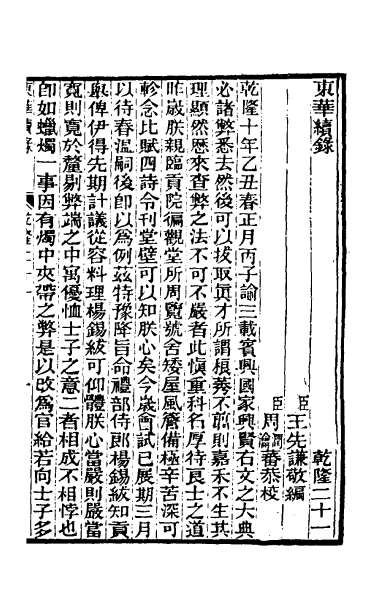 東華續錄
乾隆二十一
臣王先謙敬編
臣周潤蕃恭校
乾隆十年乙丑春正月丙子諭三載賓興國家興賢右文之大典
必諸弊悉去然後可以拔取眞才所謂稂莠不翦則嘉禾不生其
理顯然歷來查弊之法不可不嚴者此愼重科名厚待良士之道
昨歲朕親臨貢院徧觀堂所周覽號舍矮屋風簷備極辛苦深可
軫念比賦四詩令刊堂壁可以知朕心矣今歲會試已展期三月
以待春溫嗣後卽以爲例茲特豫降旨命禮部侍郎楊錫紱知貢
舉俾伊得先期計議從容料理楊錫紱可仰體朕心當嚴則嚴當
寬則寬於釐剔弊端之中寓優恤士子之意二者相成不相悖也
卽如蠟燭一事因有燭中夾帶之弊是以改爲官給若向士子多
東華續錄
乾隆二十一
一